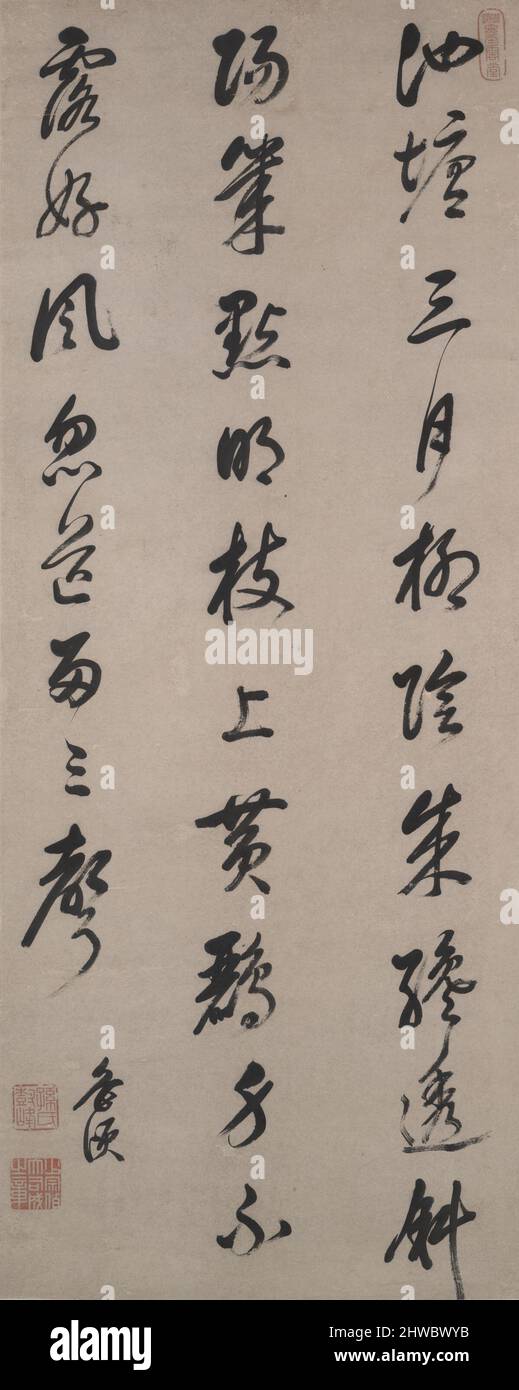 池塘三月柳陰成纔透斜
陽幾點明枝上黃鸝身不
露好風忽送兩三聲
岳頒
alamy
alamy
Image ID: 2HWBWYB
www.alamy.com